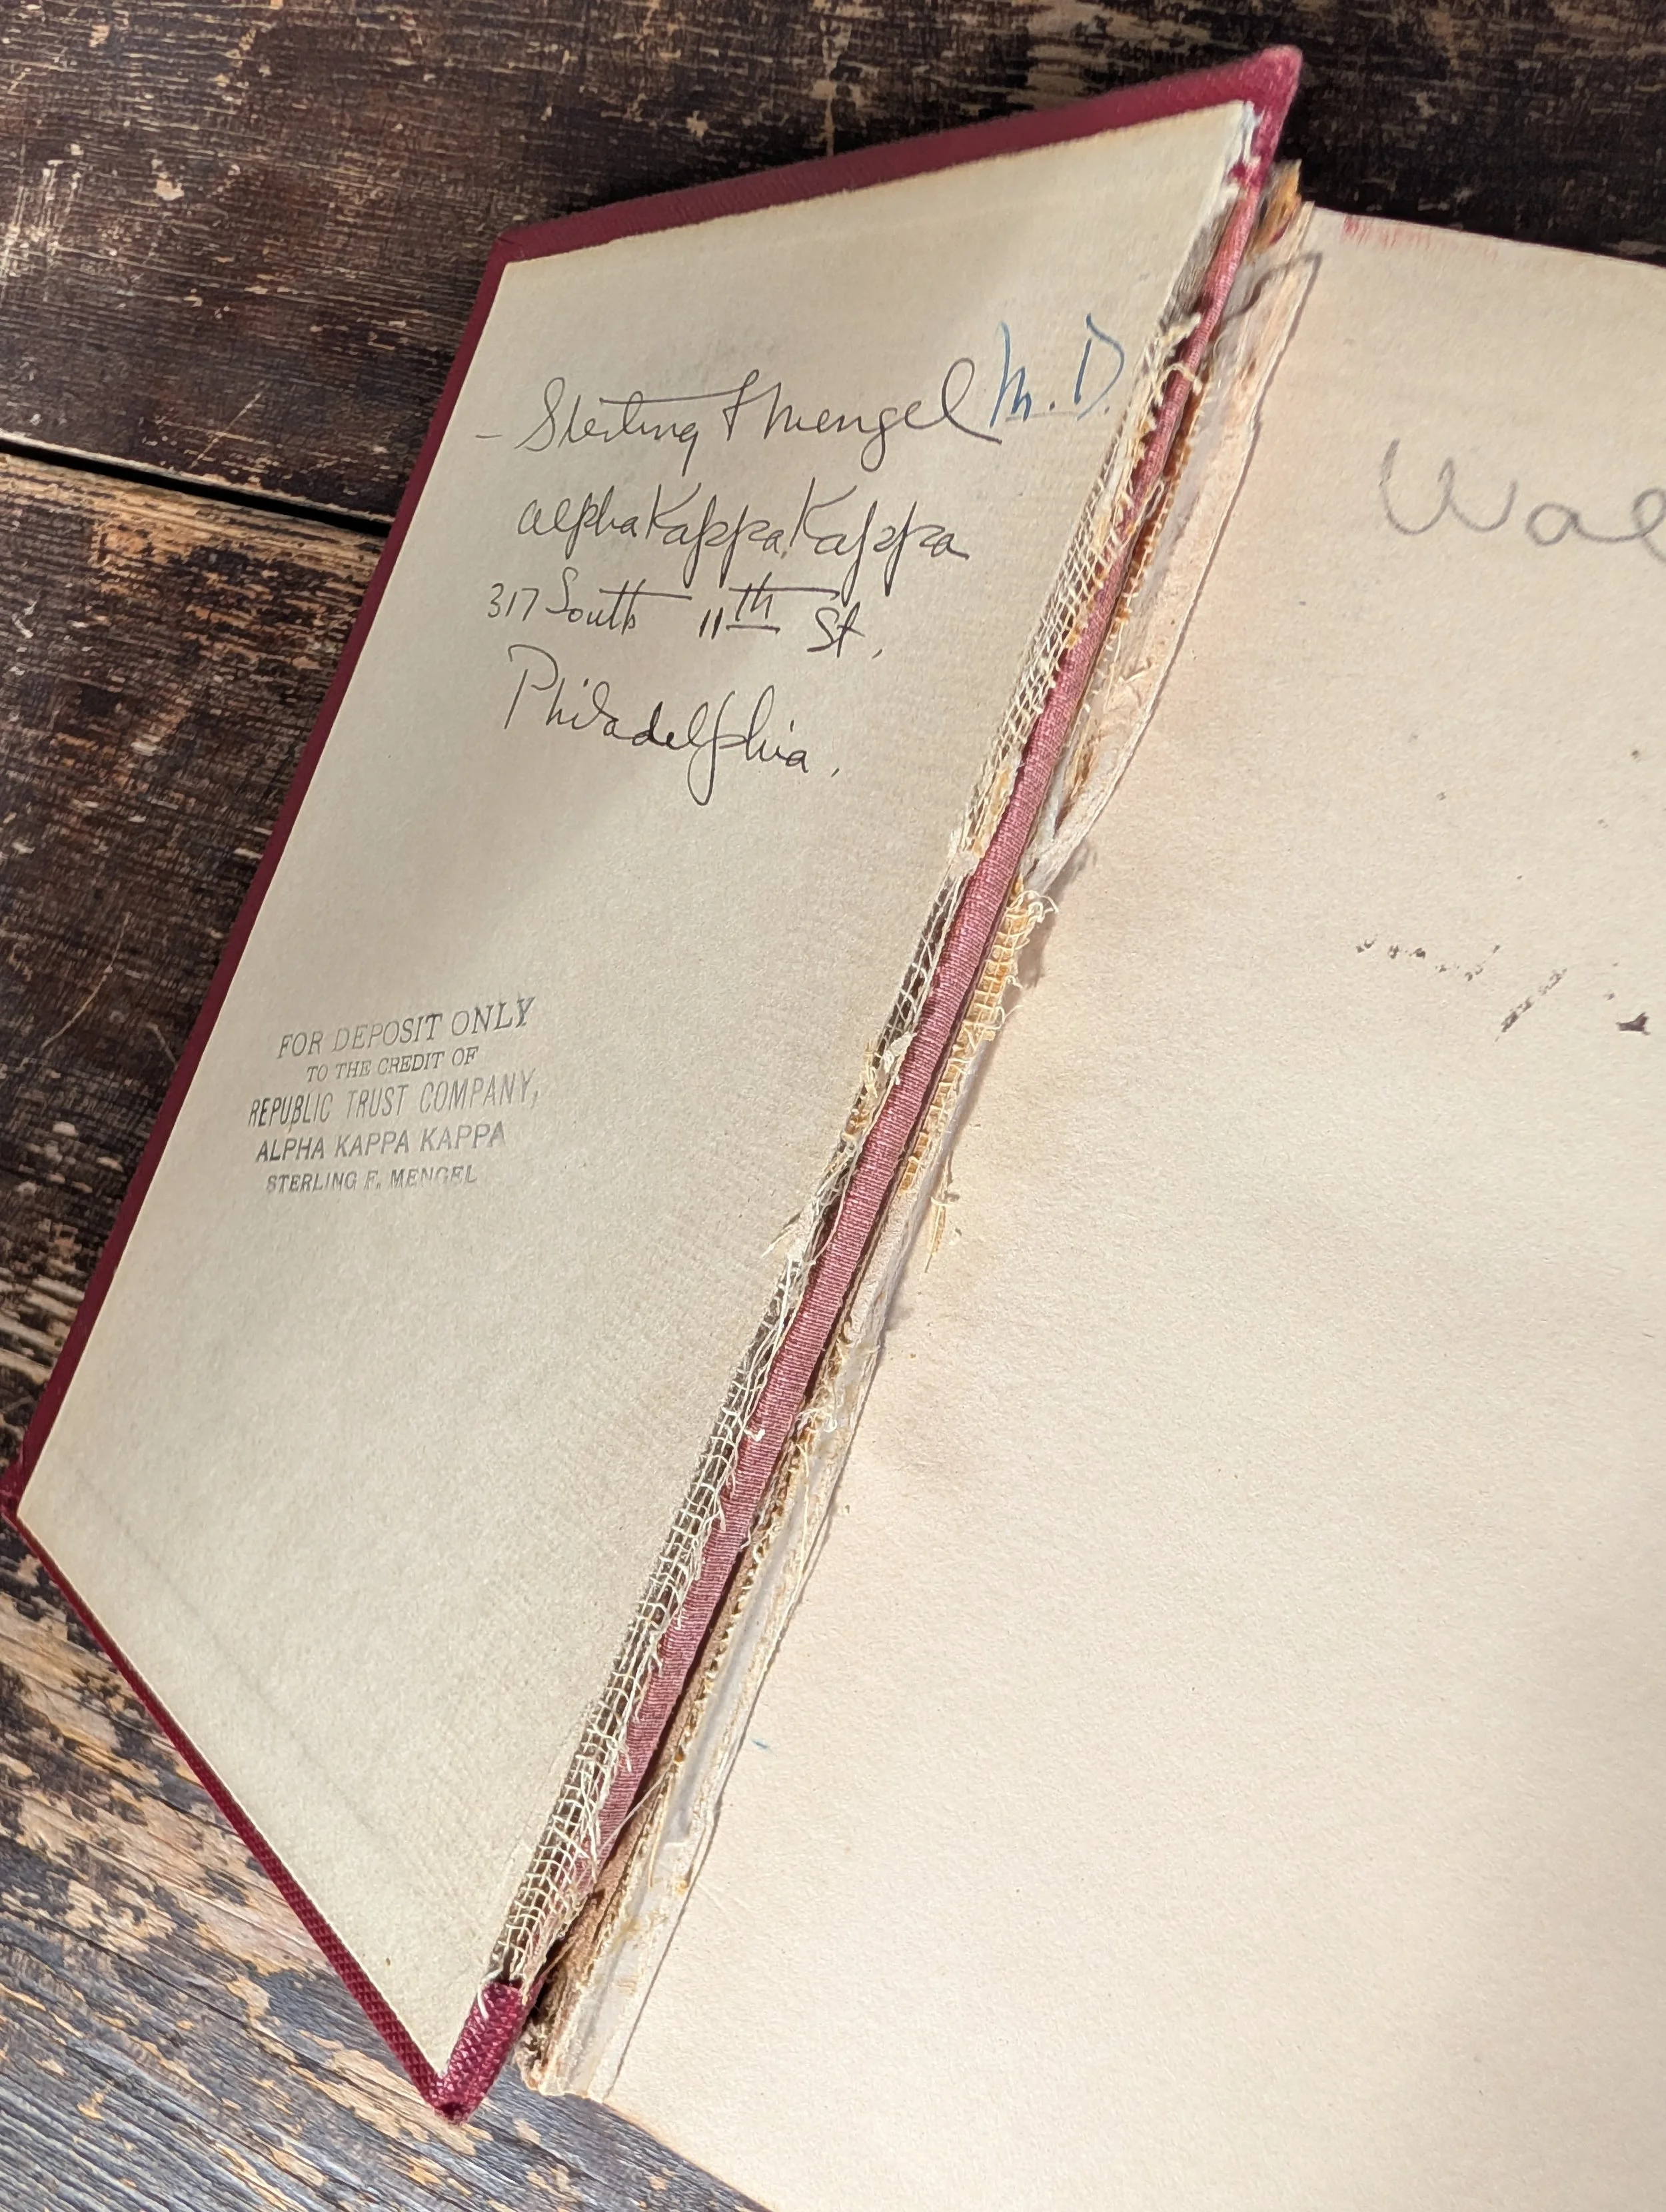 - Sterling F Mengel M.D.
Alpha Kappa Kappa
317 South 11th St,
Philadelphia.
FOR DEPOSIT ONLY
TO THE CREDIT OF
REPUBLIC TRUST COMPANY,
ALPHA KAPPA KAPPA
STERLING F. MENGEL